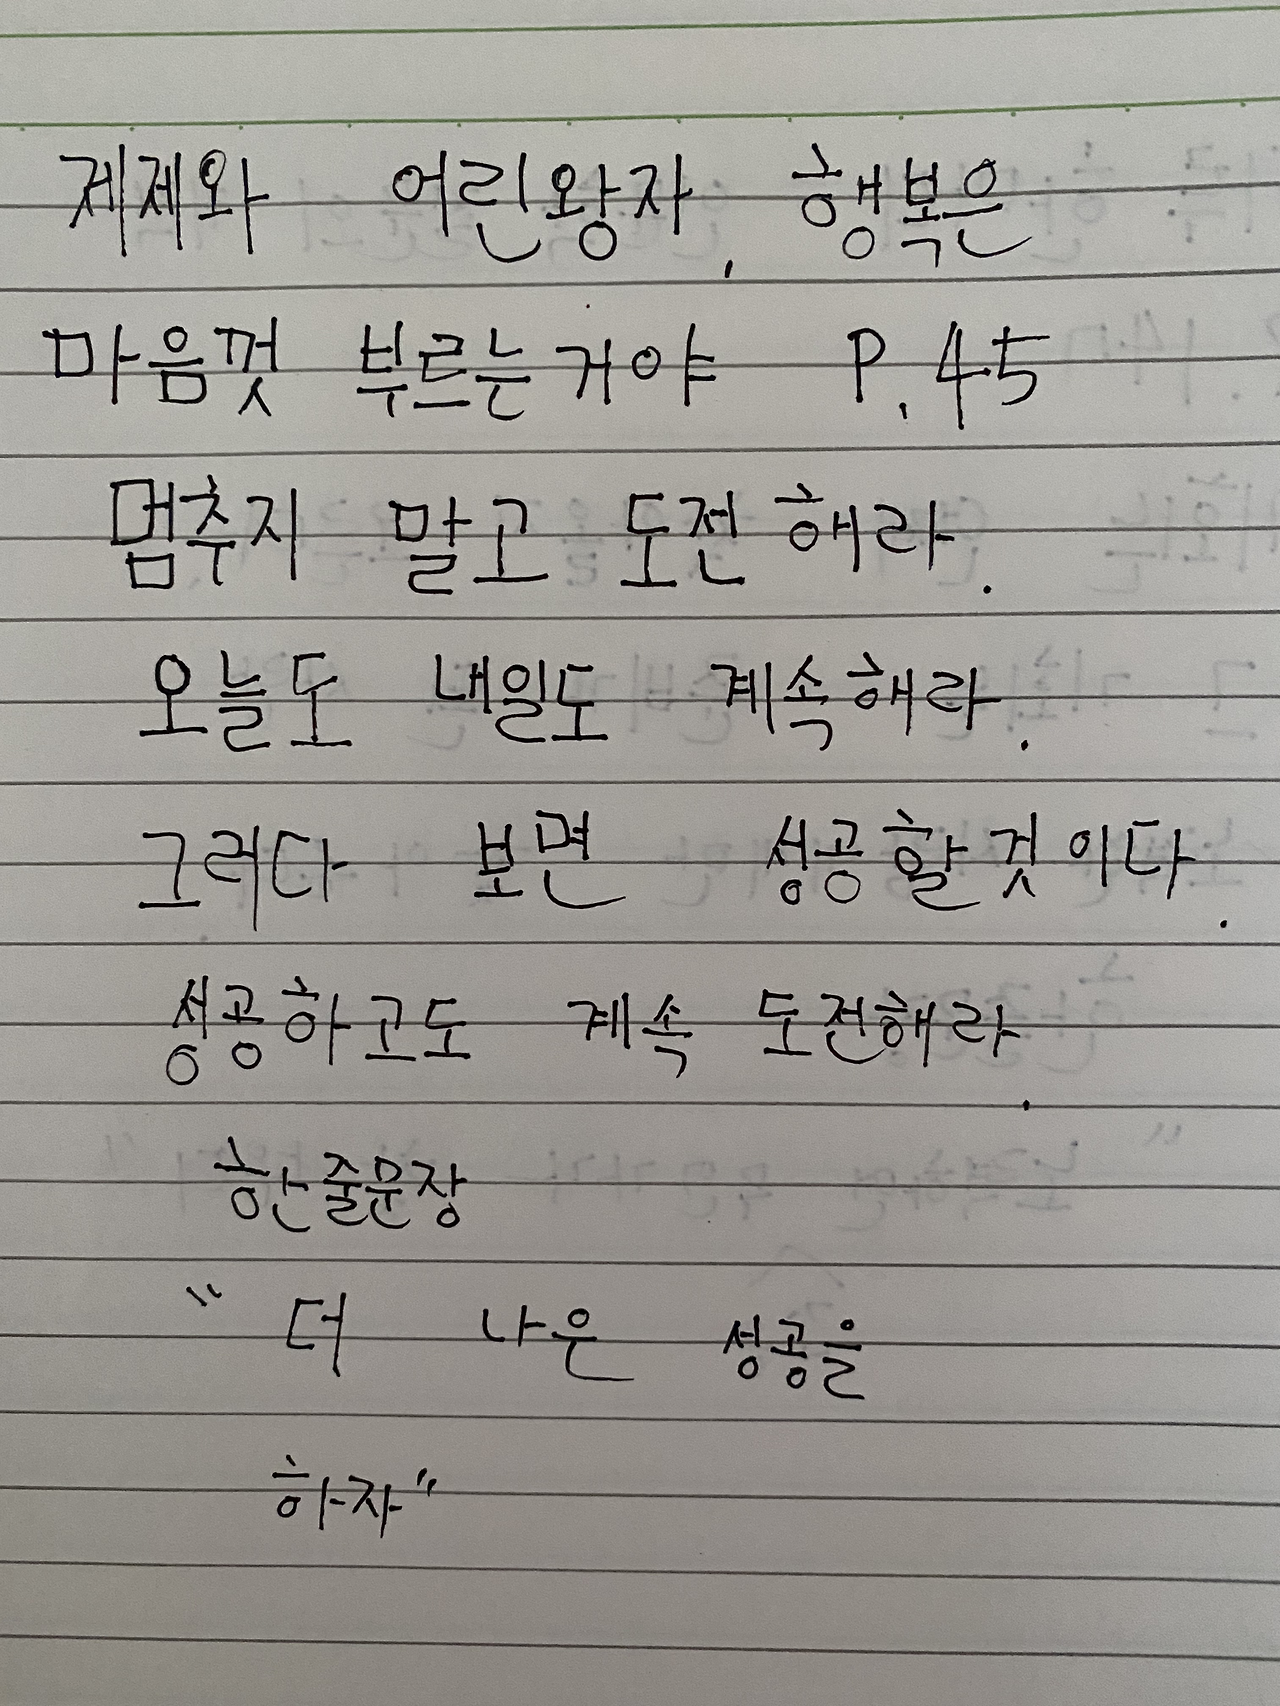 제제와 어린왕자, 행복은
마음껏 부르는거야 P.45
멈추지 말고 도전해라.
오늘도 내일도 계속해라.
그러다 보면 성공할것이다.
성공하고도 계속 도전해라.
한줄문장
"더 나은 성공을
하자"